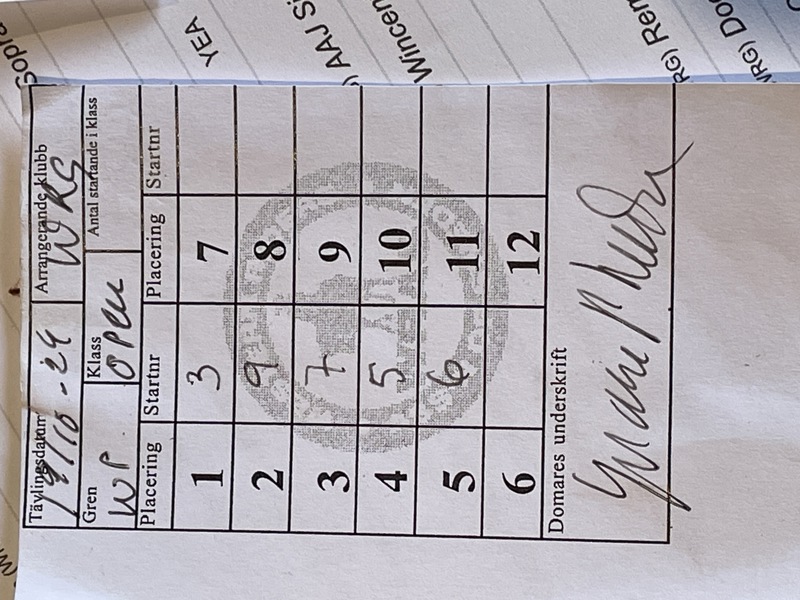 Tävlingsdatum Arrangerande klubb
19/10-24 WRG
Gren Klass Antal startande i klass
WP OPEN
Placering Startnr Placering Startnr
1 3 7
2 9 8
3 7 9
4 5 10
5 6 11
6 12
Domares underskrift
Sopra
YEA
) AAJ Si
Wincen
RG) Ren
WRG) Do